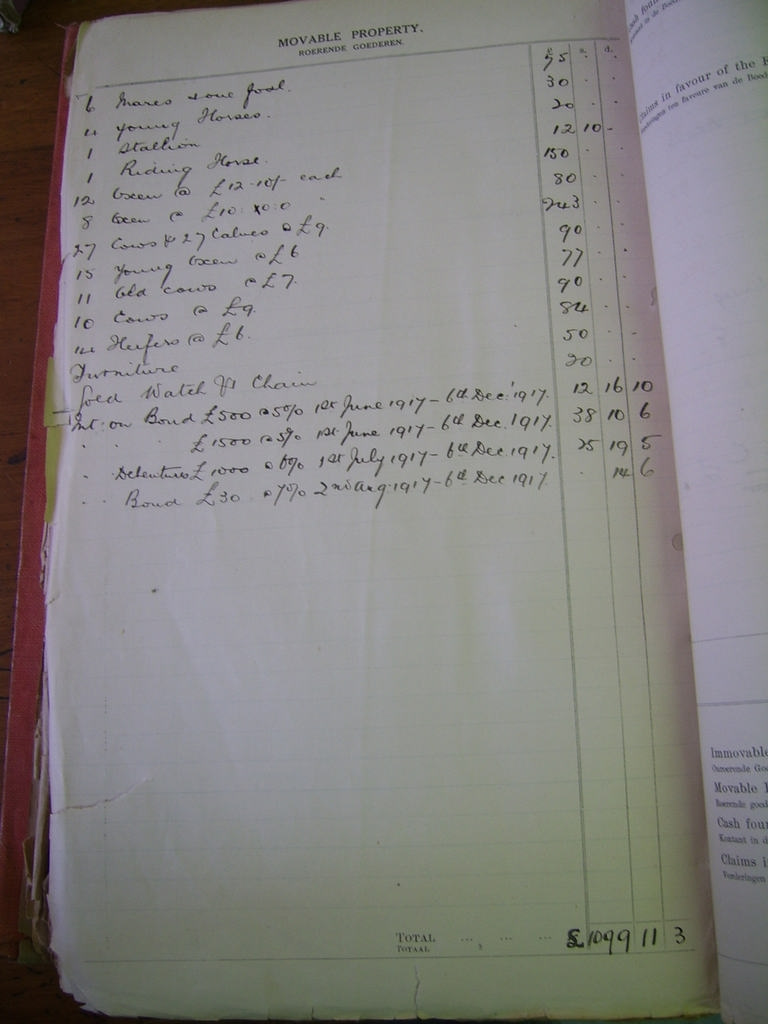 MOVABLE PROPERTY.
ROERENDE GOEDEREN.
£ s. d.
6 Mares & one foal. 75 . .
4 Young Horses. 30 . .
1 Stallion 20 . .
1 Riding Horse. 12 10 -
12 Oxen @ £12-10/- each 150 . .
8 Oxen @ £10:10:0 " 80 . .
27 Cows & 27 Calves @ £9. 243 . .
15 Young Oxen @ £6 90 . .
11 Old Cows @ £7. 77 . .
10 Cows @ £9. 90 . .
14 Heifers @ £6. 84 . .
Furniture 50 . .
Gold Watch & Chain 20 . .
Int: on Bond £500 @ 5% 1st June 1917 - 6th Dec: 1917. 12 16 10
" " £1500 @ 5% 1st June 1917 - 6th Dec. 1917. 38 10 6
" Debenture £1000 @ 6% 1st July 1917 - 6th Dec 1917. 25 19 5
" " Bond £30 @ 7% 2nd Aug. 1917 - 6th Dec 1917. . 14 6
TOTAL ... ... ... £ 1099 11 3
TOTAAL
Claims in favour of the
ten faveure van de
Immovable
Movable
Roerende
Cash
Kontant in
Claims